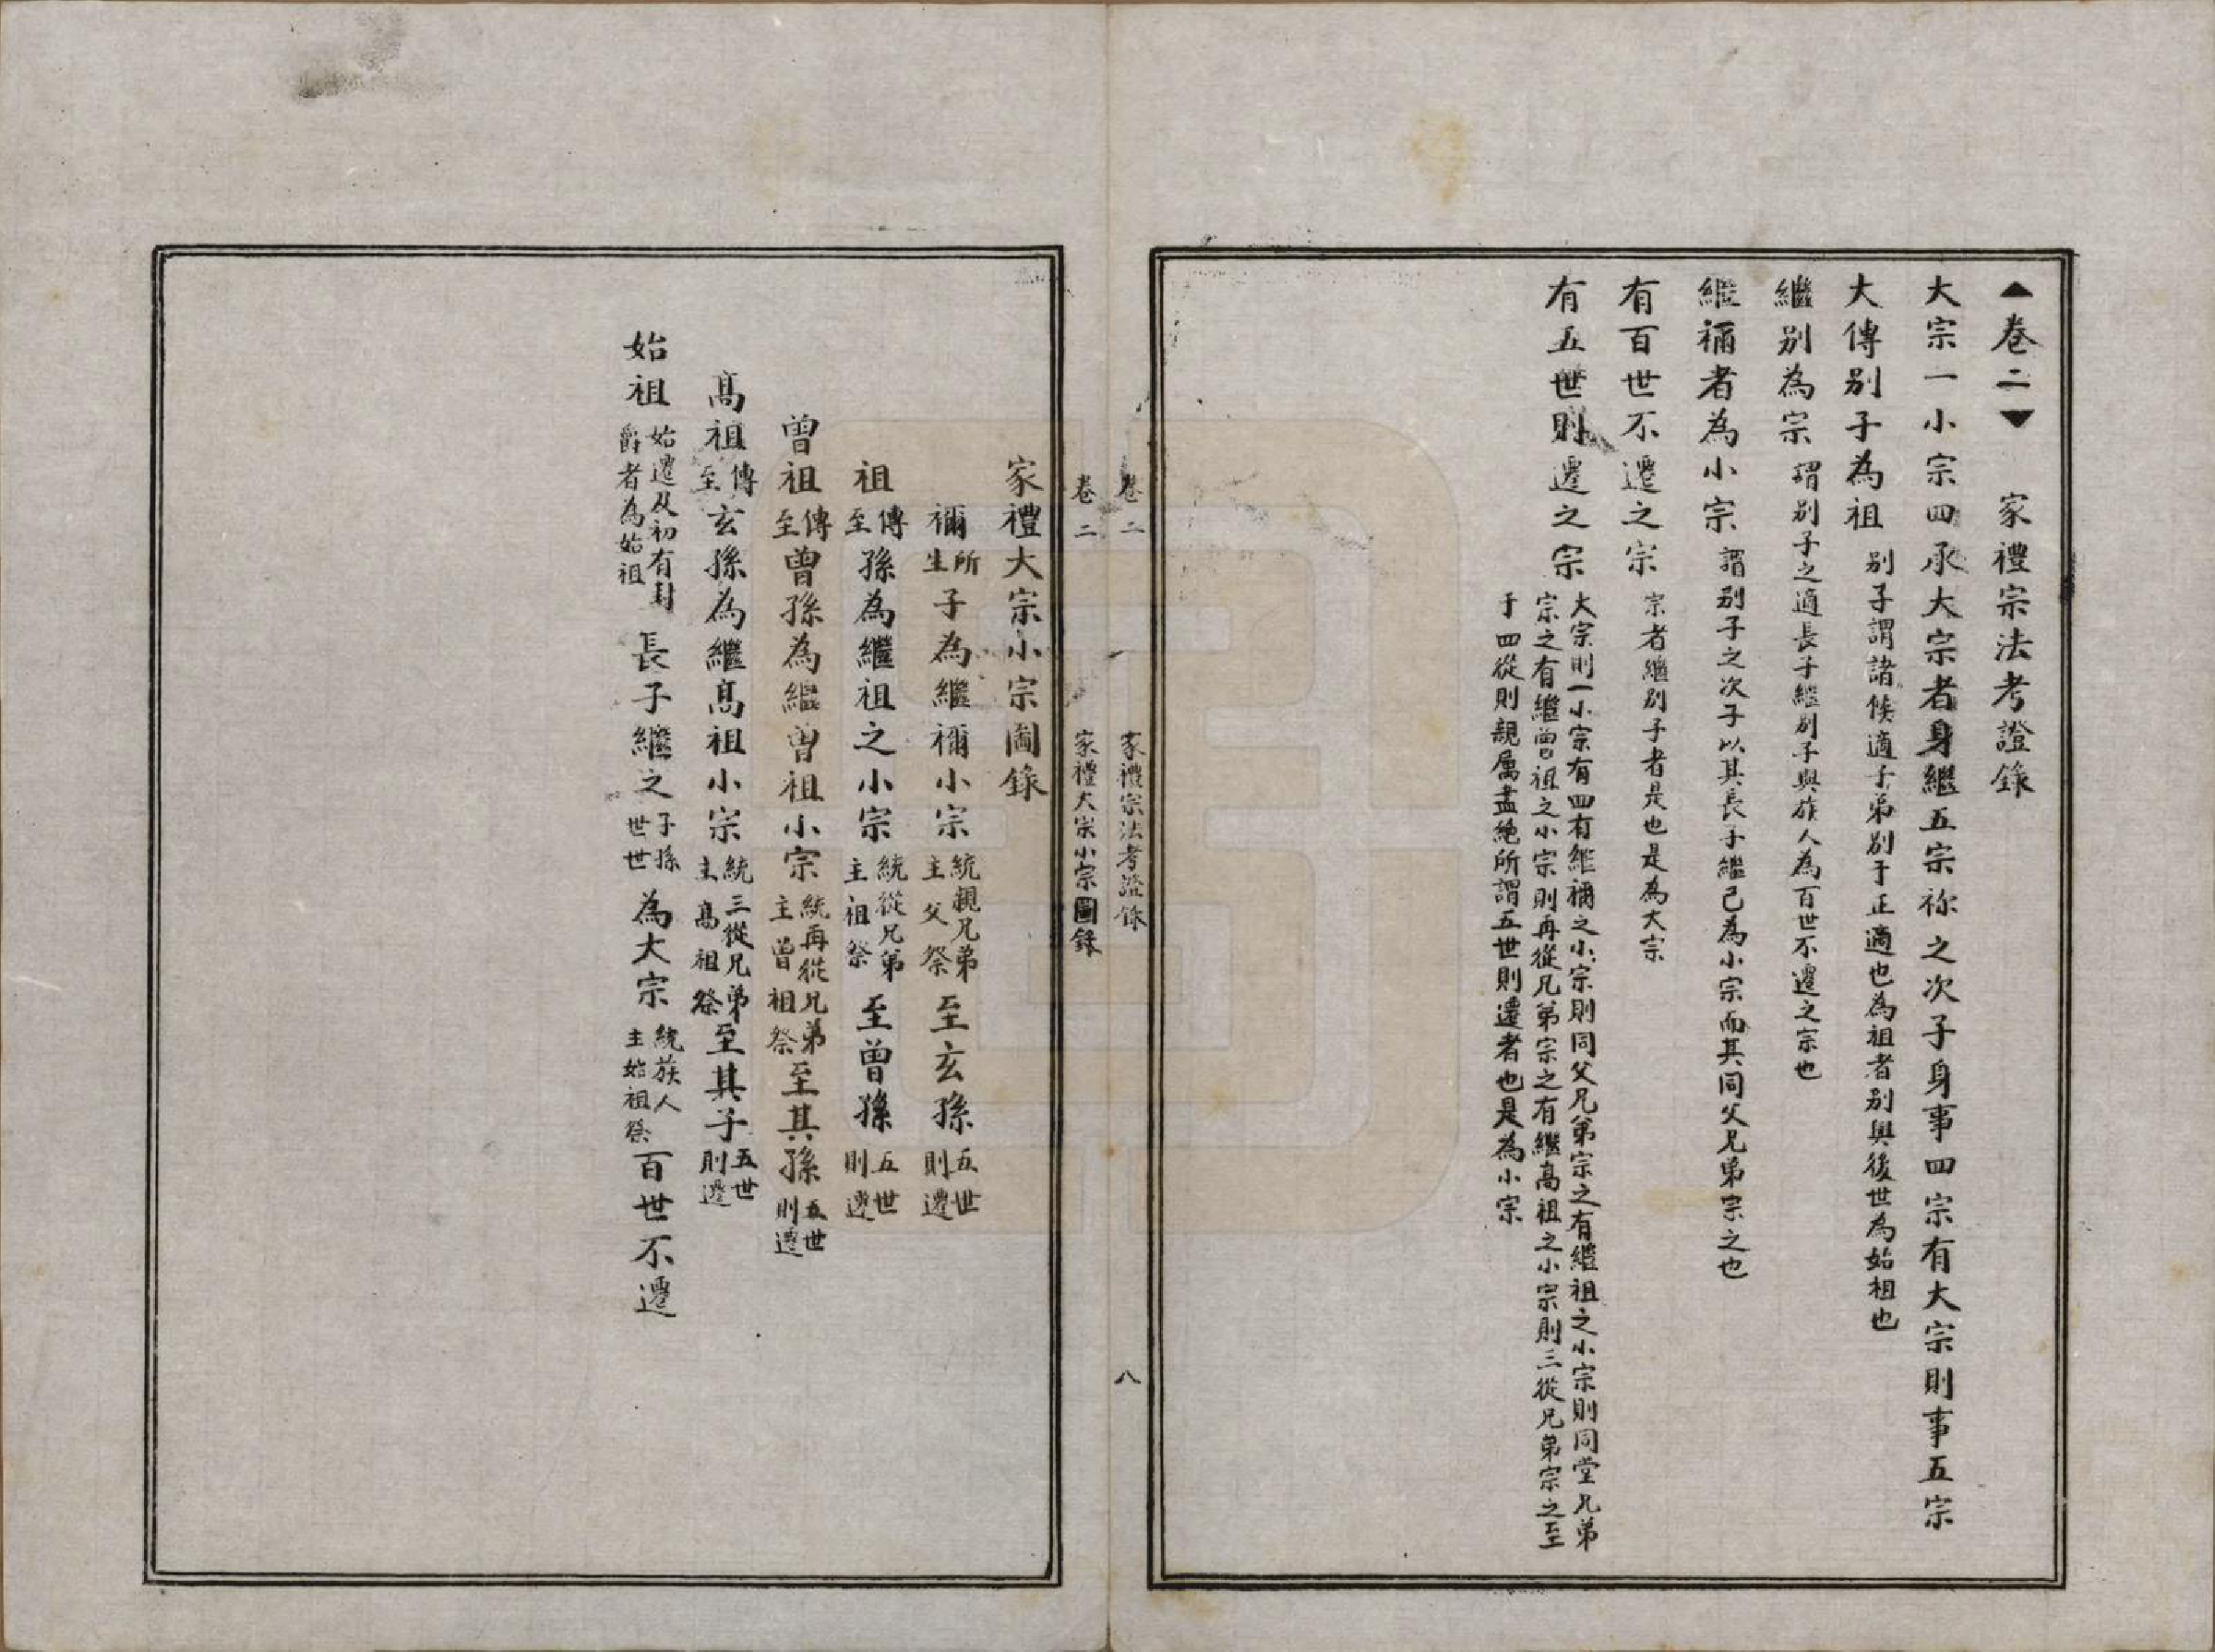 ▲卷二▼　家禮宗法考證錄
大宗一小宗四承大宗者身繼五宗祢之次子身事四宗有大宗則事五宗
大傳別子為祖　別子謂諸侯適子弟別于正適也為祖者別與後世為始祖也
繼別為宗　謂別子之適長子繼別子與族人為百世不遷之宗也
繼禰者為小宗　謂別子之次子以其長子繼己為小宗而其同父兄弟宗之也
有百世不遷之宗　宗者繼別子者是也是為大宗
有五世則遷之宗
大宗則一小宗有四有繼禰之小宗則同父兄弟宗之有繼祖之小宗則同堂兄弟
宗之有繼曾祖之小宗則再從兄弟宗之有繼高祖之小宗則三從兄弟宗之至
于四從則親属盡絶所謂五世則遷者也是為小宗
卷二　家禮宗法考證錄　八
卷二　家禮大宗小宗圖錄
家禮大宗小宗圖錄
禰所生子為繼禰小宗統親兄弟主父祭至玄孫五世則遷
祖傳至孫為繼祖之小宗統從兄弟主祖祭至曾孫五世則遷
曾祖傳至曾孫為繼曾祖小宗統再從兄弟主曾祖祭至其孫五世則遷
髙祖傳至玄孫為繼髙祖小宗統三從兄弟主髙祖祭至其子五世則遷
始祖始遷及初有封爵者為始祖長子繼之子孫世世為大宗統族人主始祖祭百世不遷